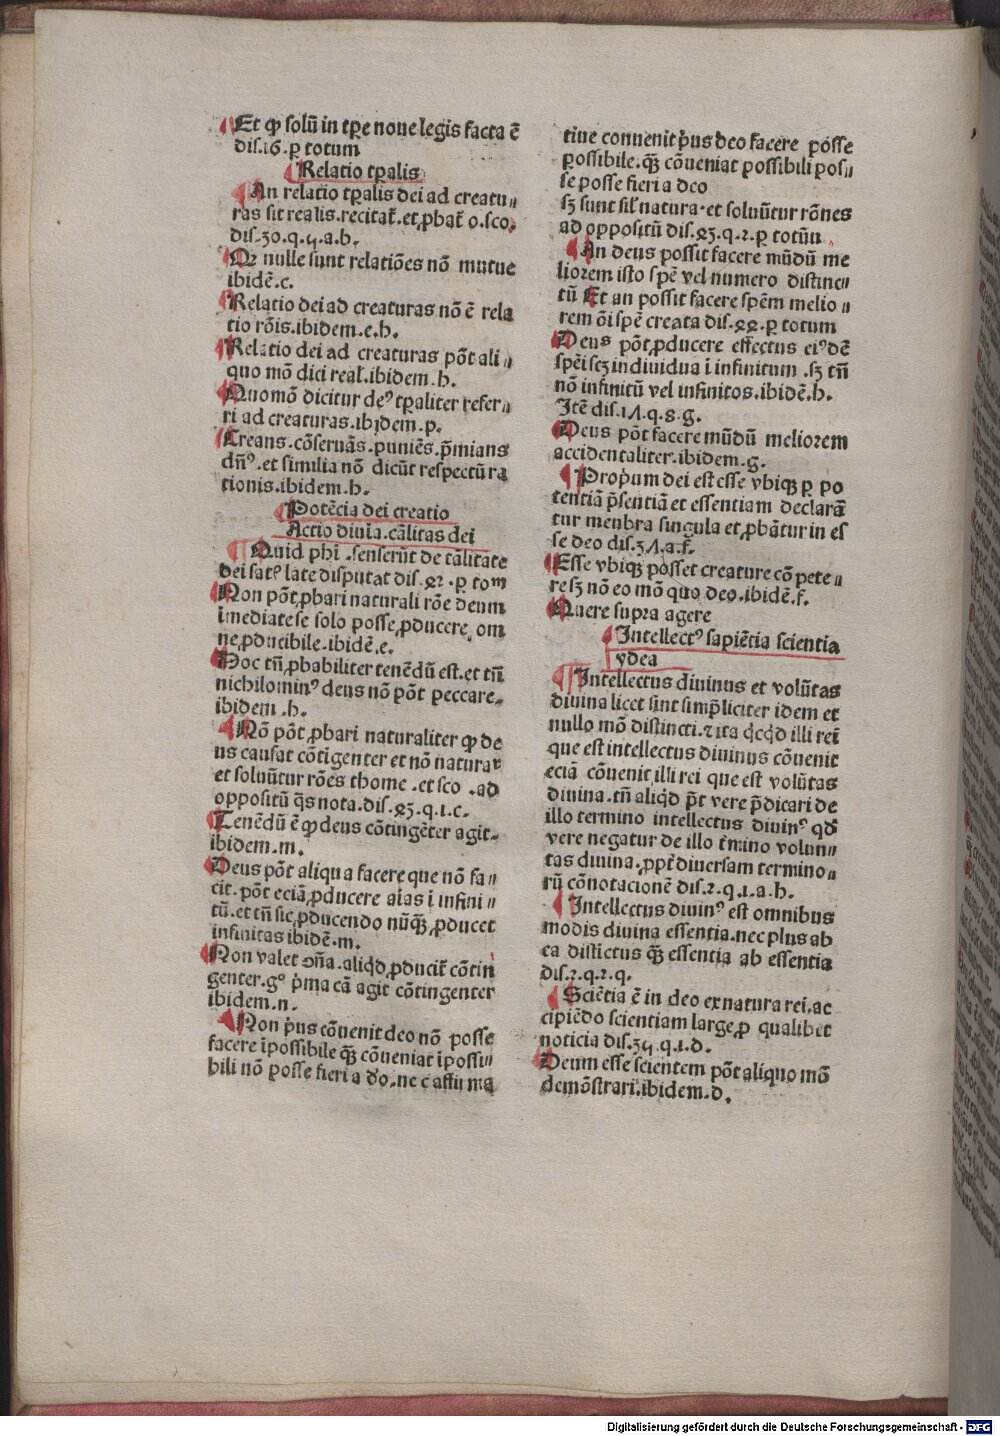 Et ꝙ solū in tꝑe noue legis facta ē
dis.16.ꝑ totum
Relatio tꝑalis
An relatio tꝑalis dei ad creatu⸗
ras sit realis.recitat̄.et ꝓbat̄ o.sco.
dis.30.q.4.a.b.
Or nulle sunt relatiōes nō mutue
ibidē.c.
Relatio dei ad creaturas nō ē rela
tio rōis.ibidem.e.h.
Relatio dei ad creaturas pōt ali⸗
quo mō dici real̄.ibidem.h.
Quomō dicitur deꝰ tꝑaliter refer⸗
ri ad creaturas.ibidem.p.
Creans.cōseruās.puniēs.p̄mians
dn̄ꝰ.et similia nō dicūt respectū ra
tionis.ibidem.h.
Potēcia dei creatio
Actio diuīa.cālitas dei
Quid phī.senserūt de cālitate
dei satꝰ late disputat dis.42.ꝑ totm
Non pōt ꝓbari naturali rōe deum
īmediate se solo posse ꝓducere om
ne ꝓducibile.ibidē.e.
Hoc tn̄ ꝓbabiliter tenēdū est.et tn̄
nichilominꝰ deus nō pōt peccare.
ibidem.h.
Nō pōt ꝓbari naturaliter ꝙ de
us causat cōtīgenter et nō naturar̄
et soluūtur rōes thome.et sco.ad
oppositū q̄s nota.dis.43.q.1.c.
Tenēdū ē ꝙ deus cōtingēter agit.
ibidem.m.
Deus pōt aliqua facere que nō fa⸗
cit.pōt eciā ꝓducere aīas ī infini⸗
tū.et tn̄ sic ꝓducendo nūꝗ̄ ꝓducet
infinitas ibidē.m.
Non valet ꝯn̄a.aliqd̄ ꝓducit̄ cōtin
genter.gͦ p̄ma cā agit cōtingenter
ibidem.n.
Non p̄us cōuenit deo nō posse
facere īpossibile ꝗ̄ cōueniat īpossi⸗
bili nō posse fieri a dō.nec affirma
tiue conuenit p̄us deo facere posse
possibile.ꝗ̄ cōueniat possibili pos⸗
se posse fieri a deo
sꝫ sunt sil̄ natura.et soluūtur rōnes
ad oppositū dis.43.q.2.ꝑ totūn
An deus possit facere mūdū me
liorem isto spē vel numero distinc⸗
tū Et an possit facere spēm melio⸗
rem ōi spē creata dis.44.ꝑ totum
Deus pōt ꝓducere effectus eiꝰdē
spēi scꝫ indiuidua ī infinitum.sꝫ tn̄
nō infinitū vel infinitos.ibidē.h.
Itē dis.17.q.8.g.
Deus pōt facere mūdū meliorem
accidentaliter.ibidem.g.
Prop̄um dei est esse vbiqꝫ ꝑ po
tentiā p̄sentiā et essentiam declarā
tur menbra singula et ꝓbātur in es
se deo dis.37.a.f.
Esse vbiqꝫ posset creature cō pete⸗
re sꝫ nō eo mō quo deo.ibidē.f.
Quere supra agere
Intellectꝰ sapiētia scientia
ydea
Intellectus diuinus et volūtas
diuina licet sint simp̄liciter idem et
nullo mō distincti.⁊ ita q̄cq̄d illi rei
que est intellectus diuinus cōuenit
eciā cōuenit illi rei que est volūtas
diuina.tn̄ aliqd̄ p̄t vere p̄dicari de
illo termino intellectus diuinꝰ qd̄
vere negatur de illo t̄mino volun⸗
tas diuina.ꝓpt̄ diuersam termino⸗
rū cōnotacionē dis.2.q.1.a.h.
Intellectus diuinꝰ est omnibus
modis diuina essentia.nec plus ab
ea distīctus ꝗ̄ essentia ab essentia
dis.2.q.2.q.
Sciētia ē in deo ex natura rei.ac
cipiēdo scientiam large.ꝑ qualibet
noticia dis.34.q.1.d.
Deum esse scientem pōt aliquo mō
demōstrari.ibidem.d.
Digitalisierung gefördert durch die Deutsche Forschungsgemeinschaft - DFG